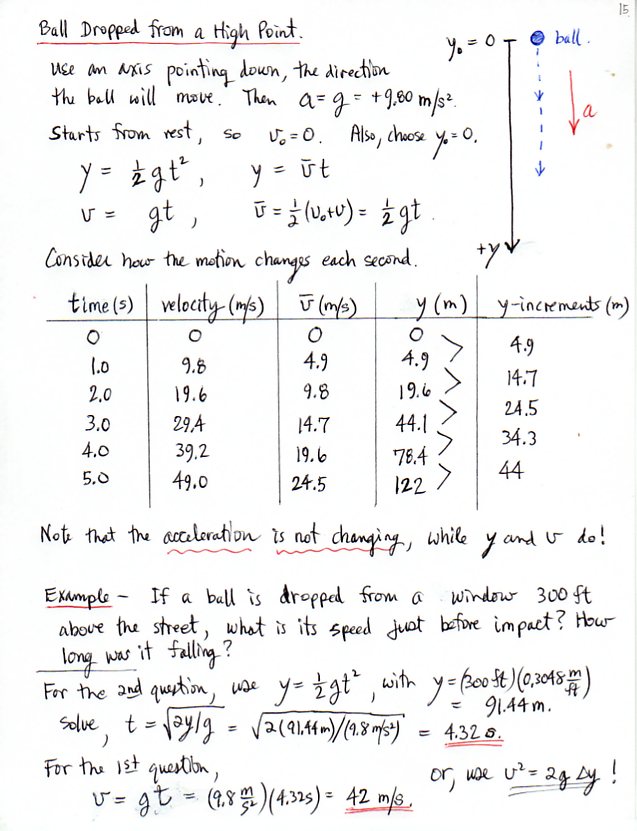 15
Ball Dropped from a High Point.
y₀ = 0
ball.
Use an axis pointing down, the direction
the ball will move. Then a = g = +9.80 m/s².
a
Starts from rest, so v₀ = 0. Also, choose y₀ = 0.
y = ½ gt², y = v̄t
v = gt, v̄ = ½(v₀+v) = ½ gt.
+y
Consider how the motion changes each second.
time (s) velocity (m/s) v̄ (m/s) y (m) y-increments (m)
0 0 0 0
4.9
1.0 9.8 4.9 4.9
14.7
2.0 19.6 9.8 19.6
24.5
3.0 29.4 14.7 44.1
34.3
4.0 39.2 19.6 78.4
44
5.0 49.0 24.5 122
Note that the acceleration is not changing, while y and v do!
Example - If a ball is dropped from a window 300 ft
above the street, what is its speed just before impact? How
long was it falling?
For the 2nd question, use y = ½ gt², with y = (300 ft)(0.3048 m/ft)
= 91.44 m.
Solve, t = √2y/g = √2(91.44m)/(9.8 m/s²) = 4.32 s.
For the 1st question,
or, use v² = 2g Δy !
v = gt = (9.8 m/s²)(4.32s) = 42 m/s.